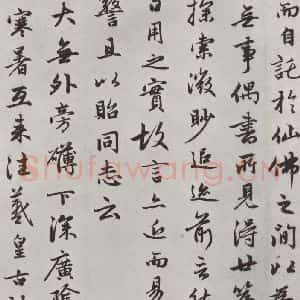 而自託於仙佛之間以為
無事偶書所見得廿篇
探索微眇追迹前言
日用之實故言亦近而易
警且以貽同志云
大無外旁礴下深廣陰
寒暑互来往羲皇古
Shufawang.cn